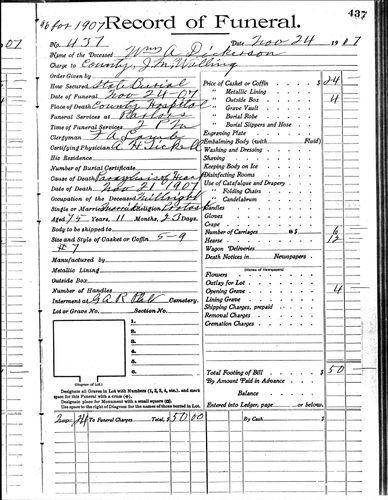 437
96 for 1907
Record of Funeral.
07
No. 437
Date Nov 24 1907
Name of the Deceased Wm A. Dickerson
Charge to County, J. M. Welling
Order Given by
How Secured State Burial
Date of Funeral Nov 24-07
Place of Death County Hospital
Funeral Services at Parlors
Time of Funeral Services 2 P M
Clergyman F A Lamb
Certifying Physician A H Tickell
His Residence
Number of Burial Certificate
Cause of Death Paraplysis of Heart
Date of Death Nov 21 1907
Occupation of the Deceased Millright
Single or Married Married Religion Protast
Aged 75 Years, 11 Months, 23 Days
Body to be shipped to
Size and Style of Casket or Coffin 5-9
# 7
Manufactured by
Metallic Lining
Outside Box
Number of Handles
Interment at G.A.R. Plat Cemetery.
Lot or Grave No. Section No.
1.
2.
3.
4.
5.
6.
(Diagram of Lot.)
Designate all Graves in Lot with Numbers (1, 2, 3, 4, etc.), and mark
space for this Funeral with a cross (+).
Designate place for Monument with a small square (□).
Use space to the right of Diagram for the names of those buried in Lot.
Price of Casket or Coffin $ 24
" Metallic Lining
" Outside Box 4
" Grave Vault
" Burial Robe
" Burial Slippers and Hose
Engraving Plate
Embalming Body (with Fluid)
Washing and Dressing
Shaving
Keeping Body on Ice
Disinfecting Rooms
Use of Catafalque and Drapery
" Folding Chairs
" Candelabrum
Handles
Gloves
Crape
Number of Carriages @ $ 6
Hearse 12
Wagon Deliveries
Death Notices in Newspapers
(Names of Newspapers)
Flowers
Outlay for Lot
Opening Grave 4
Lining Grave
Shipping Charges, prepaid
Removal Charges
Cremation Charges
Total Footing of Bill $ 50
By Amount Paid in Advance
Balance
Entered into Ledger, page or below.
24 To Funeral Charges Total, $ 50 00
By Cash $